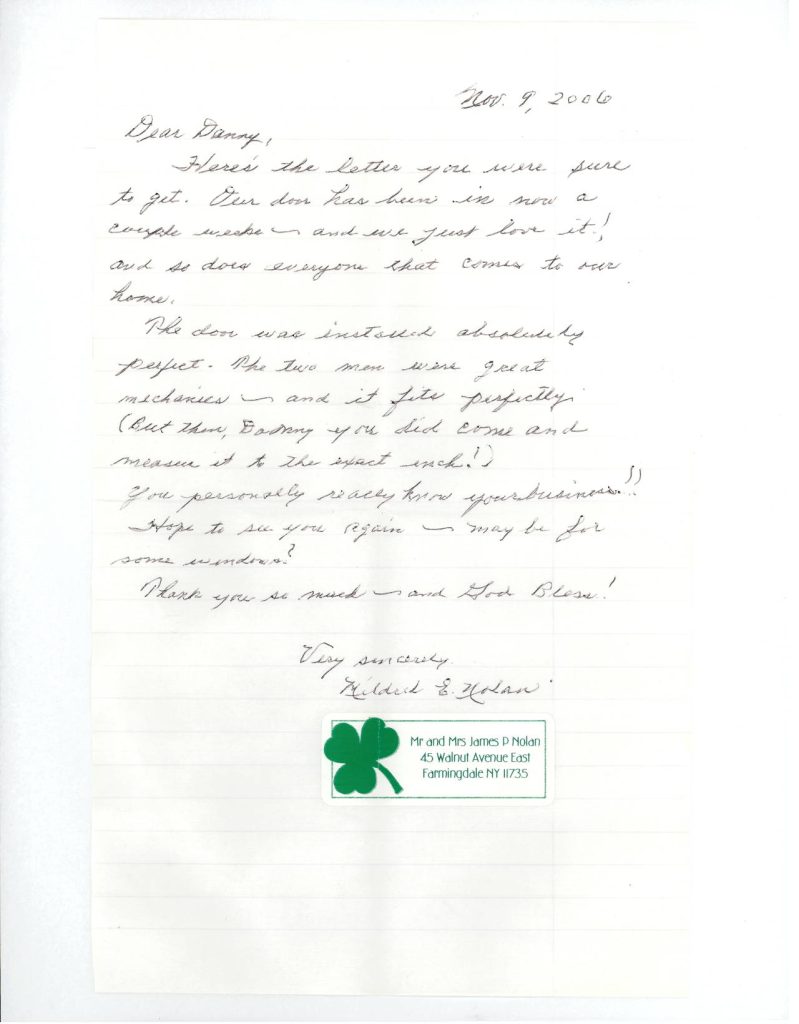 Nov. 9, 2006
Dear Danny,
Here's the letter you were sure
to get. Our door has been in now a
couple weeks — and we just love it!,
and so does everyone that comes to our
home.
The door was installed absolutely
perfect. The two men were great
mechanics — and it fits perfectly.
(But then, Danny you did come and
measure it to the exact inch!)
You personally really know your business.!!
Hope to see you again — may be for
some windows?
Thank you so much — and God Bless!
Very sincerely
Mildred E. Nolan
Mr and Mrs James P Nolan
45 Walnut Avenue East
Farmingdale NY 11735